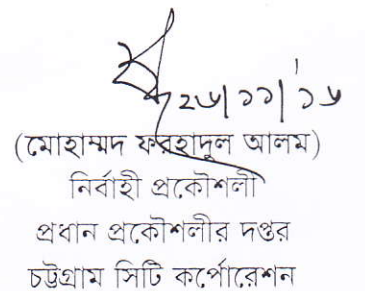 ২৬/১১/'১৬
(মোহাম্মদ ফরহাদুল আলম)
নির্বাহী প্রকৌশলী
প্রধান প্রকৌশলীর দপ্তর
চট্টগ্রাম সিটি কর্পোরেশন